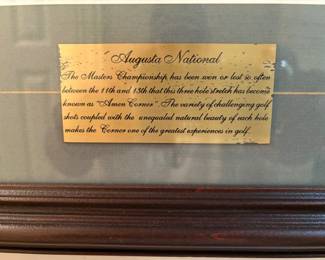 Augusta National
The Masters Championship has been won or lost so often
between the 11th and 13th that this three hole stretch has become
known as "Amen Corner". The variety of challenging golf
shots coupled with the unequaled natural beauty of each hole
makes the Corner one of the greatest experiences in golf.